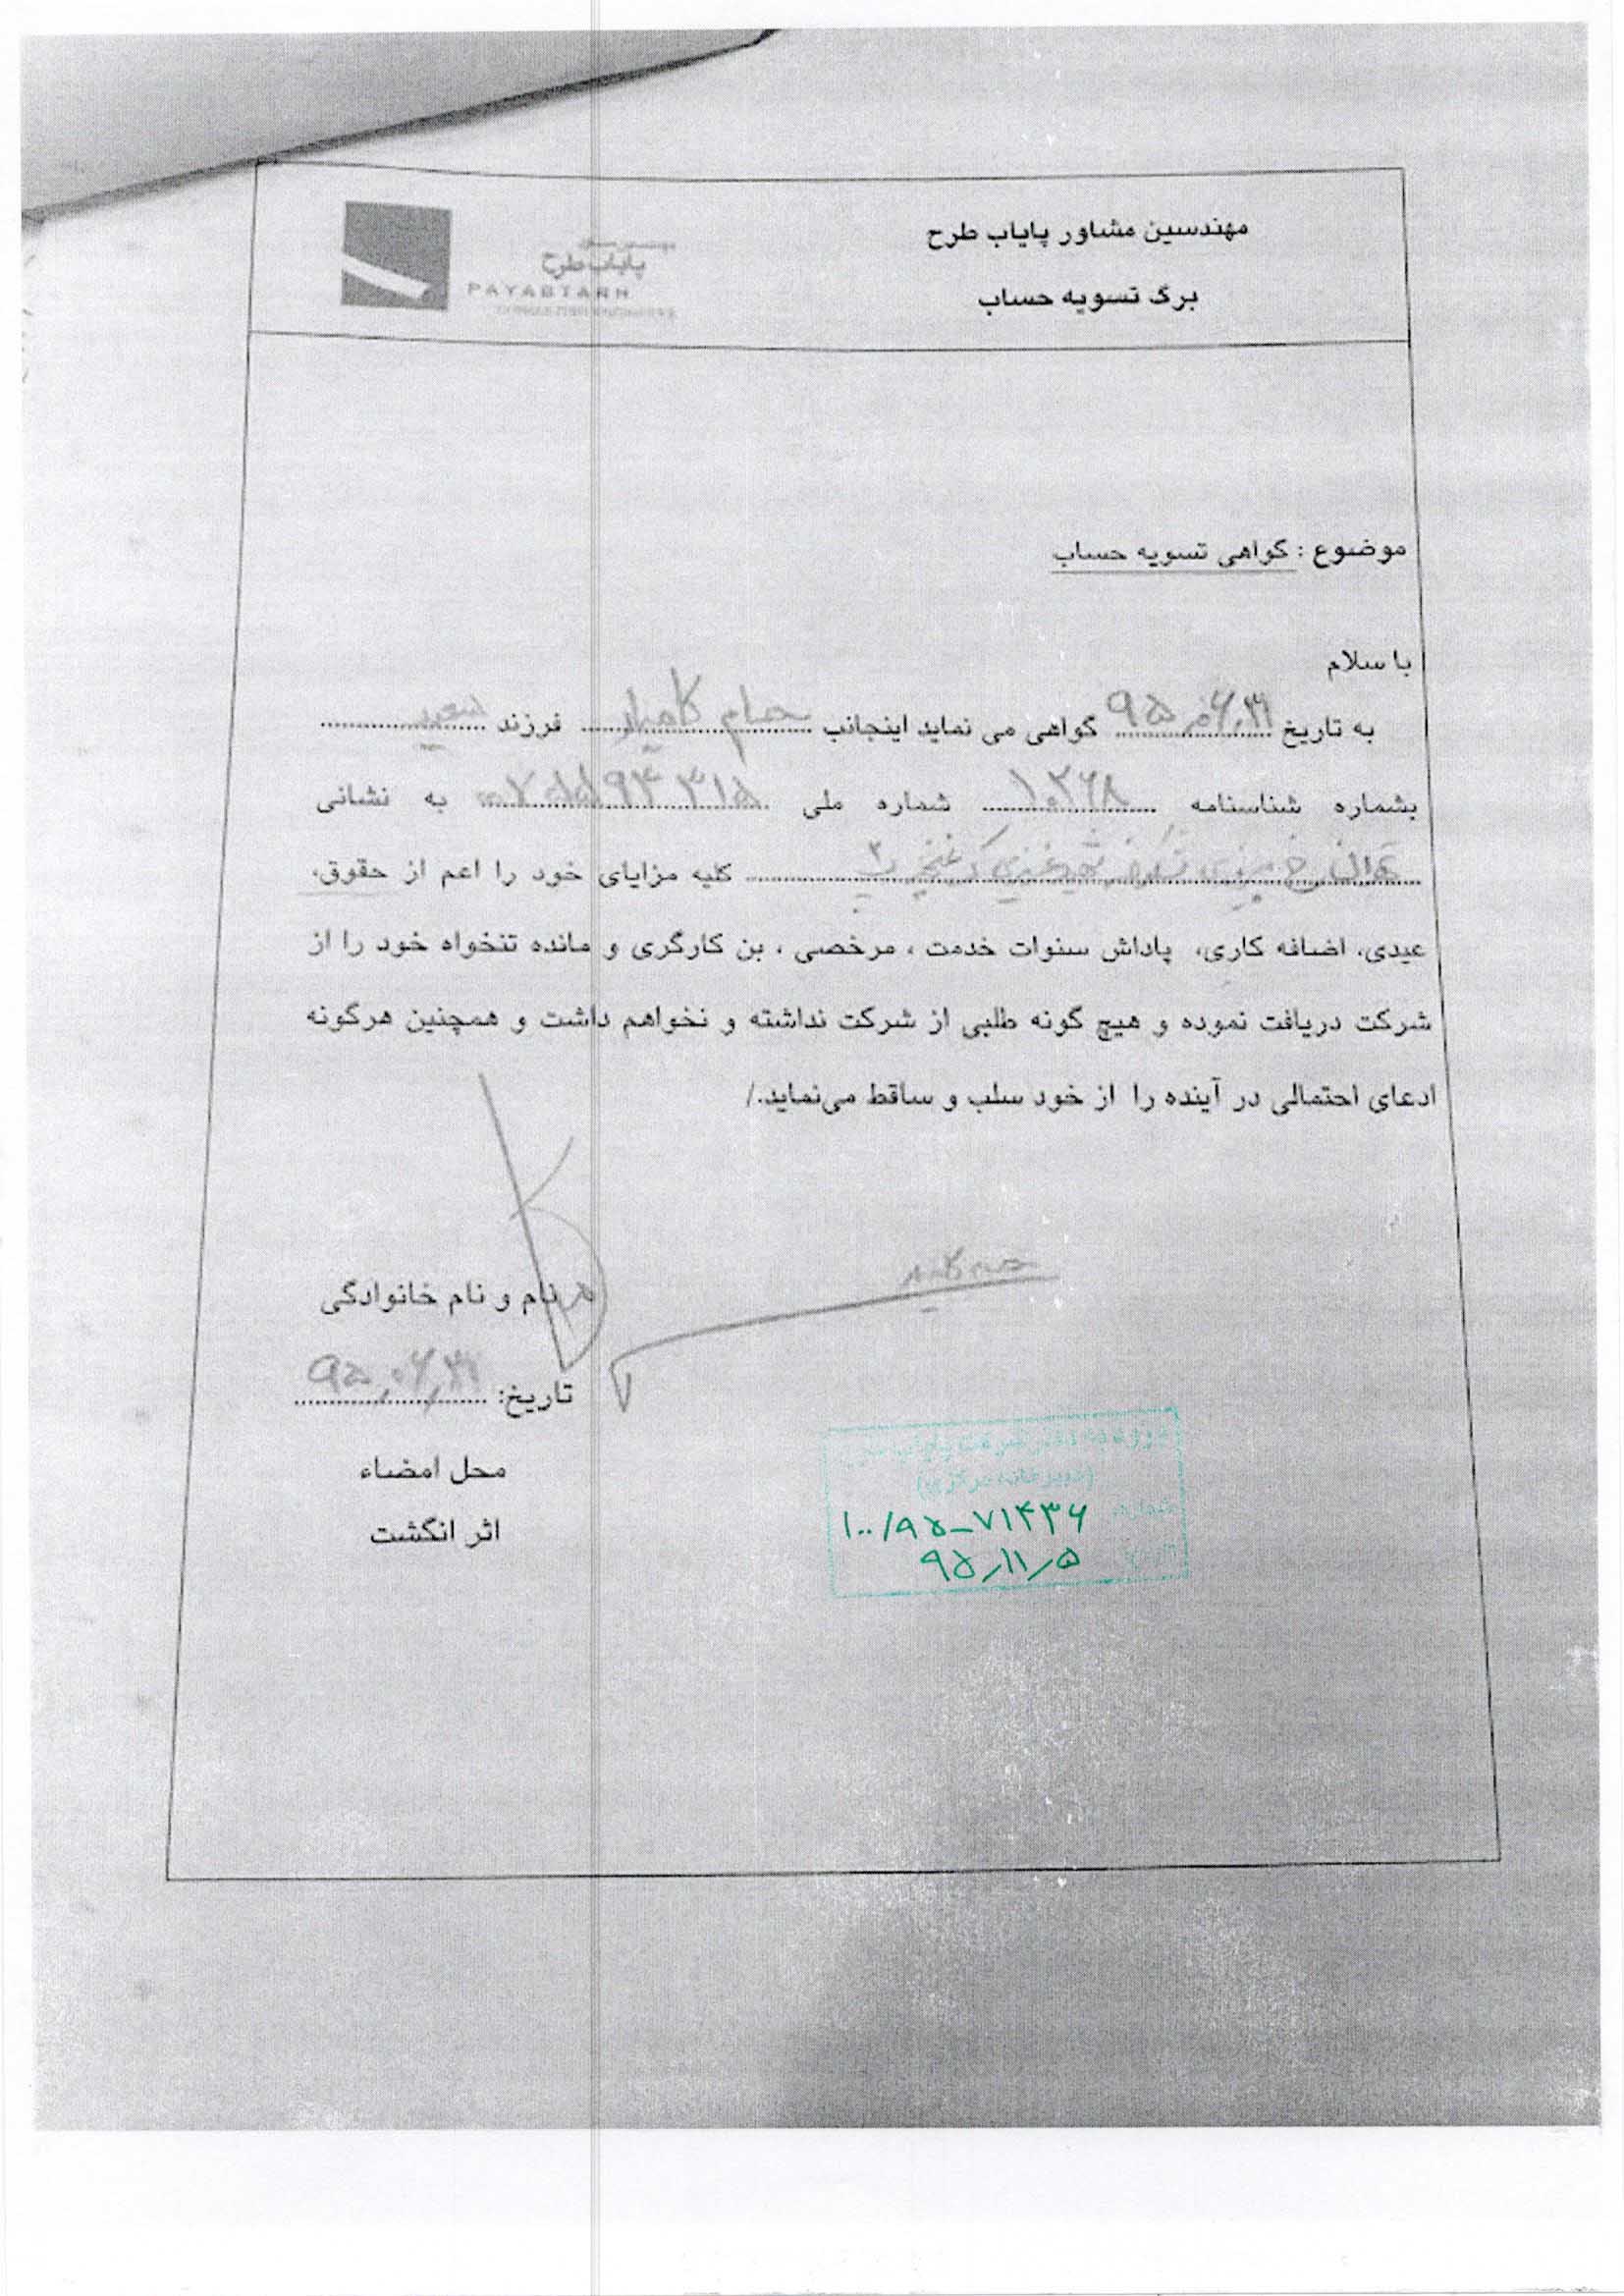 مهندسین مشاور پایاب طرح
برگ تسویه حساب
پایاب طرح
PAYABTARH
موضوع : گواهی تسویه حساب
با سلام
به تاریخ ۹۵,۰۶,۳۱ گواهی می نماید اینجانب حسام کامیار فرزند سعید
بشماره شناسنامه ۱۰۲۶۸ شماره ملی به نشانی
کلیه مزایای خود را اعم از حقوق،
عیدی، اضافه کاری، پاداش سنوات خدمت ، مرخصی ، بن کارگری و مانده تنخواه خود را از
شرکت دریافت نموده و هیچ گونه طلبی از شرکت نداشته و نخواهم داشت و همچنین هرگونه
ادعای احتمالی در آینده را از خود سلب و ساقط می‌نماید./
حسام کامیار
نام و نام خانوادگی
تاریخ: ۹۵,۰۶,۳۱
محل امضاء
اثر انگشت
(دبیرخانه مرکزی)
شماره: ۱۰۰/۹۵-۷۱۴۳۶
۹۵/۱۱/۵